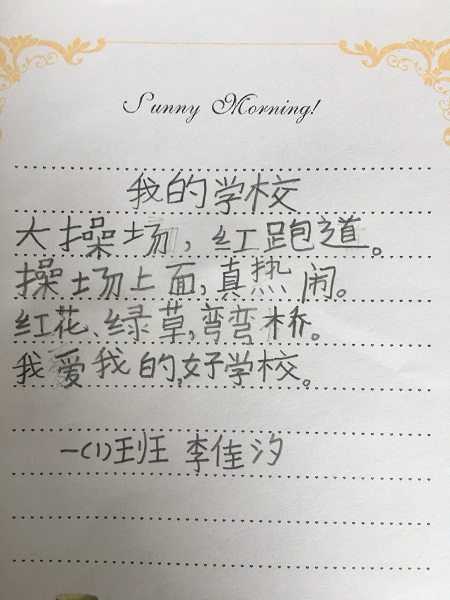 Sunny Morning!
我的学校
大操场,红跑道。
操场上面,真热闹。
红花、绿草,弯弯桥。
我爱我的,好学校。
一(1)班 李佳汐